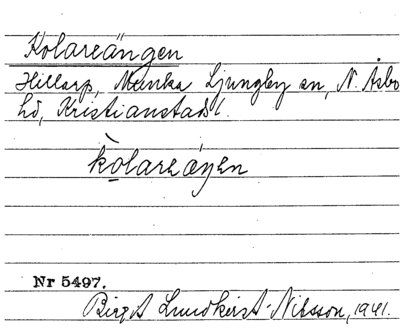 Kolareängen
Hillarp, Munka Ljungby sn, N. Åsbo
hd, Kristianstads l.
kòlareáŋen
Nr 5497.
Birgit Lundkvist-Nilsson, 1941.